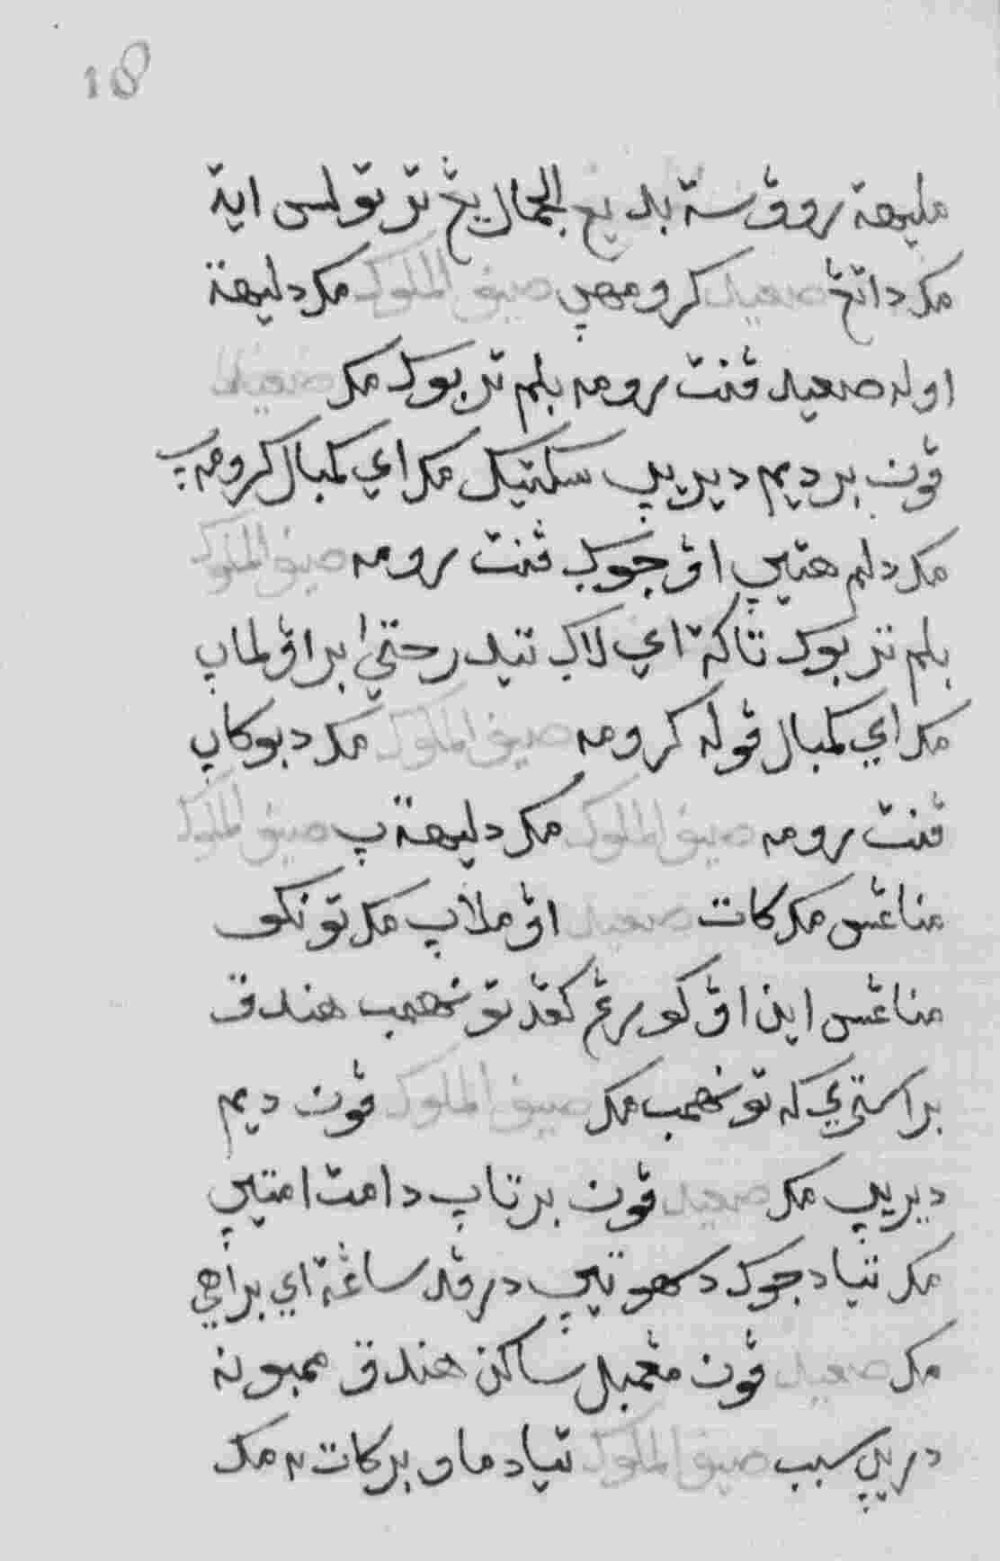 18
مليهة روڤ ستة بديع الجمال يڠ ترتولس ايت
مک داتڠ صعيد کرومهڽ صيف الملوک مک دليهة
اوله صعيد ڤنت رومه بلم تربوک مک صعيد
ڤون برديم ديريڽ سکتيک مک اي کمبال کرومهڽ
مک دلم هتيڽ اڤ جوک ڤنت رومه صيف الملوک
بلم تربوک تاکة اي لاک تيدر حتي براڤ لماڽ
مک اي کمبال ڤوله کرومه صيف الملوک مک دبوکاڽ
ڤنت رومه صيف الملوک مک دليهة ڽ صيف الملوک
مناڠس مک کات صعيد اڤ ملاڽ مک تونکو
مناڠس اين اڤ کورڠ کڤد تونهمب هندق
براستري که تونهمب مک صيف الملوک ڤون ديم
ديريڽ مک صعيد ڤون برتاڽ دامت امتيڽ
مک تياد جوک دسهوتيڽ درڤد ساڠة اي براهي
مک صعيد ڤون مڠمبل ساکن هندق ممبونه
ديريڽ سبب صيف الملوک تياد ماو برکات٢ مک